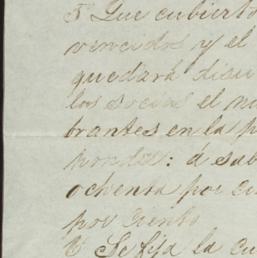 5ª Que cubierto
vencidos y el
quedará disu
los socios el
brantes en la p
pondez: á sab
ochenta por
por ciento
Se fija la cu